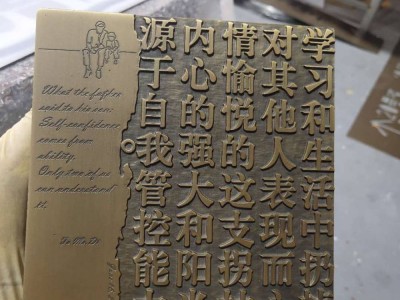 What the father
said to his son:
Self-confidence
comes from
ability.
Only two of us
can understand
it.
学习和生活中扔
对其他人表现而
情愉悦的这支拐
内心的强大和阳
源于自我管控能